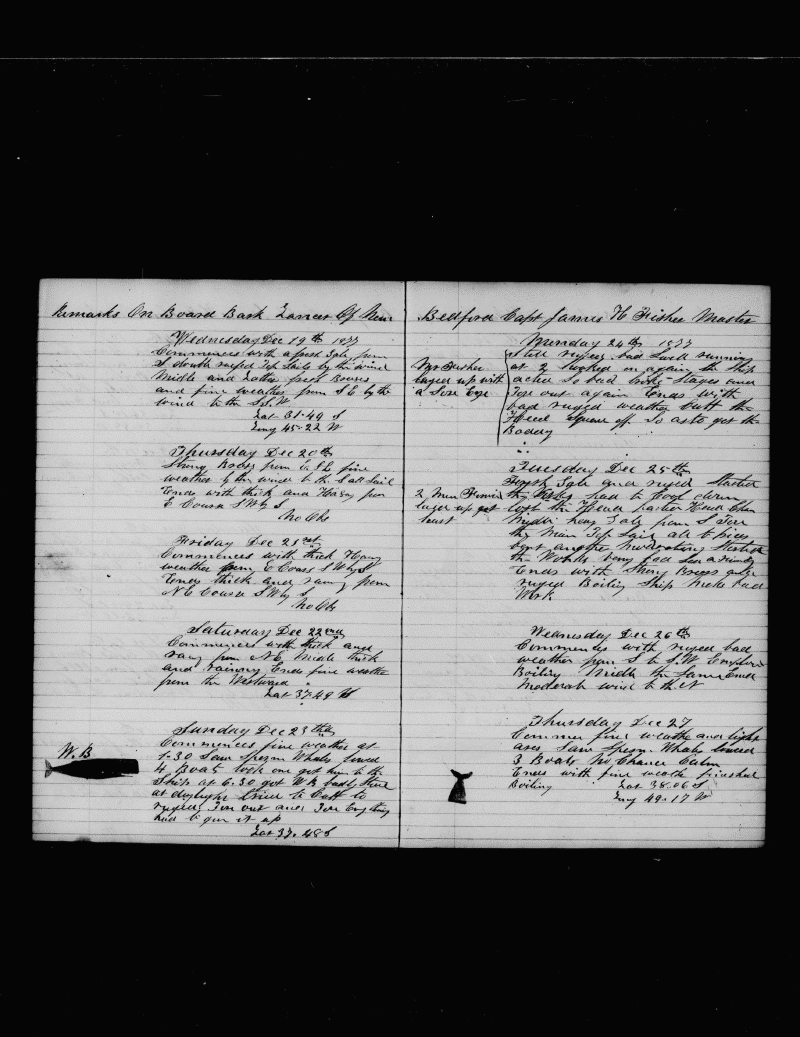 Remarks On Board Bark Lancer Of New
Wednesday Dec 19th 1877
Commences with a fresh Gale from
S double reefed Top Sails by the wind
Midle and Latter fresh
and fine weather from S E by the
wind to the S.S.W.
Lat 31-49 S
Long 45-22 W
Thursday Dec 20th
Strong from E.S.E fine
weather by the wind to the S all Sail
Ends with thick and Hazy from
E Course S W by S
No Obs
Friday Dec 21st
Commences with thick Hazy
weather from E Cours S W by S
Ends thick and rainy from
N E Course S W by S
No Obs
Saturday Dec 22nd
Commences with thick and
rainy from N.E. Midle thick
and rainey Ends fine weather
from the Westward
Lat 37-49 S
Sunday Dec 23th
W. B
Commences fine weather at
1.30 Saw Sperm Whales lowed
4 Boats one got him to the
Ship at 6.30 got badly
at daylight tried to Cutt to
ruged Tore out and Tore Everything
had to give it up
Lat 37.48 S
Bedford Capt James H Fisher Master
Monday 24th 1877
Still ruged bad Swell running
at 2 hooked on again the Ship
acted So bad broke Stages and
Tore out again Ends with
bad ruged weather Cutt the
Head off So as to get the
Boddy
Mr
layed up with
a Sore Eye
Tuesday Dec 25th
Fresh Gale and ruged Started
the had to Cool down
lost the Head
Midle heavy Gale from S Tore
the Main Top Sail all to pieces
bent another Moderating Started
the Works heavy bad Sea
Ends with Strong and
ruged Boiling Ship Makes bad
Work
2 Men
layed up got
hurt
Wednesday Dec 26th
Commences with ruged bad
weather from S to S.W Employed
Boiling Midle the Same Ends
Moderate wind to the N
Thursday Dec 27
fine weather and light
airs Saw Sperm Whales lowed
3 Boats No Chance Calm
Ends with fine weather finished
Boiling Lat 38.06 S
Long 49-17 W